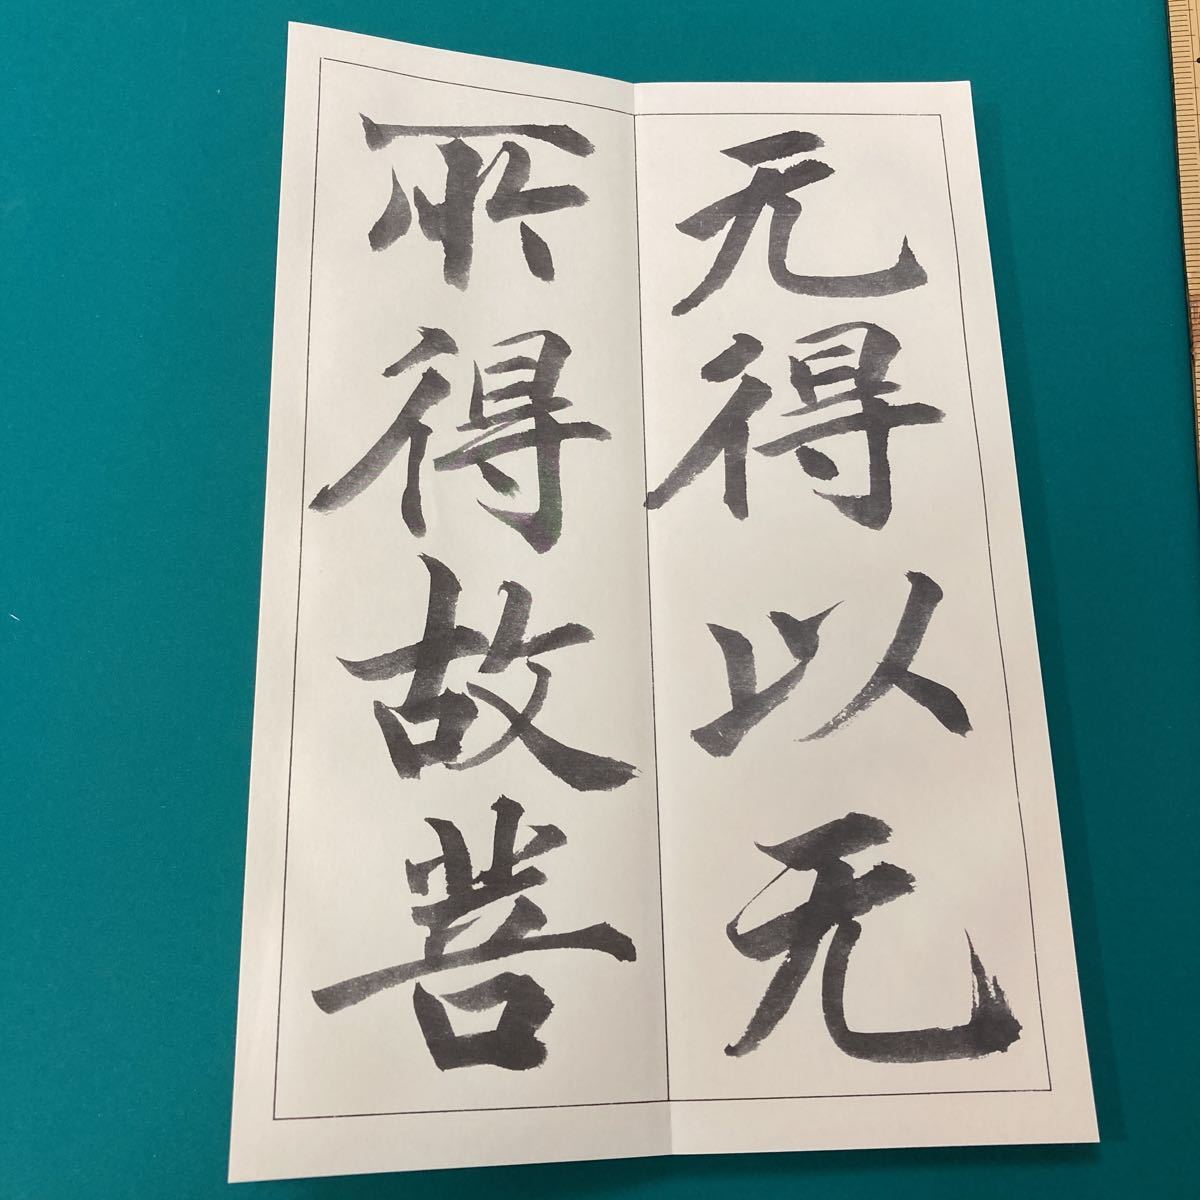 无得以无
所得故菩